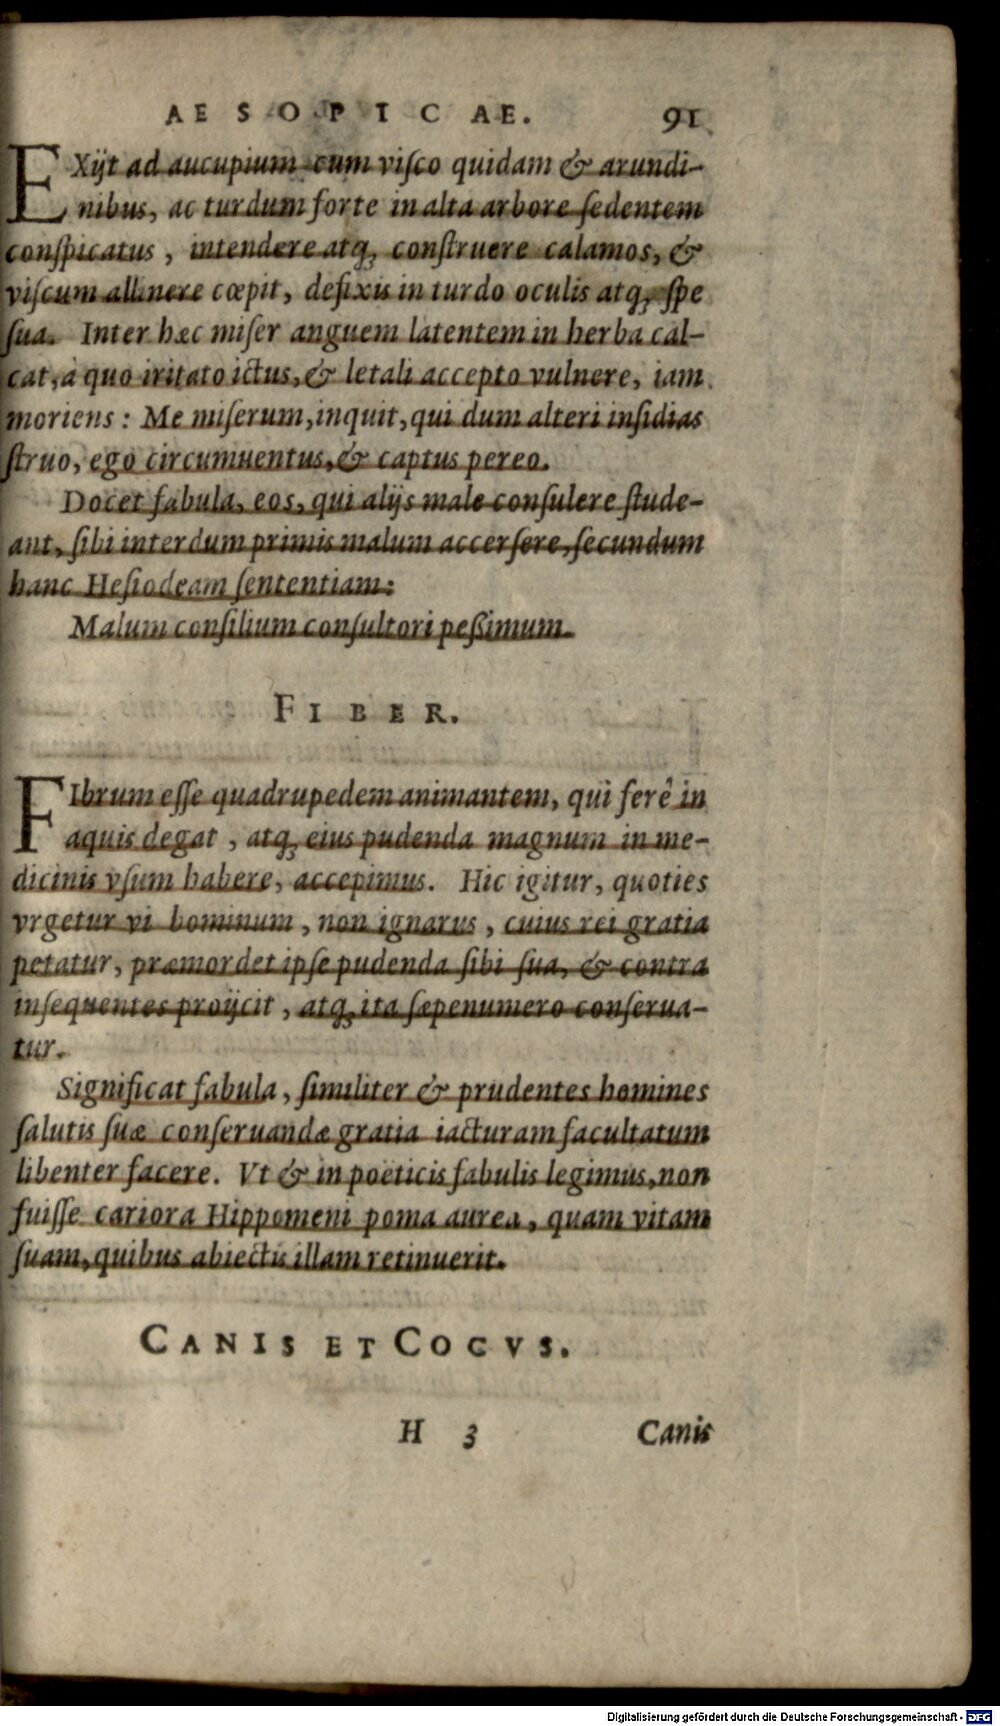 AESOPICAE. 91
EXijt ad aucupium cum visco quidam & arundi-
nibus, ac turdum forte in alta arbore sedentem
conspicatus, intendere atq; construere calamos, &
viscum allinere cœpit, defixis in turdo oculis atq; spe
sua. Inter hæc miser anguem latentem in herba cal-
cat, à quo iritato ictus, & letali accepto vulnere, iam
moriens: Me miserum, inquit, qui dum alteri insidias
struo, ego circumuentus, & captus pereo.
Docet fabula, eos, qui alijs male consulere stude-
ant, sibi interdum primis malum accersere, secundum
hanc Hesiodeam sententiam:
Malum consilium consultori peßimum.
FIBER.
FIbrum esse quadrupedem animantem, qui ferè in
aquis degat, atq; eius pudenda magnum in me-
dicinis vsum habere, accepimus. Hic igitur, quoties
vrgetur vi hominum, non ignarus, cuius rei gratia
petatur, præmordet ipse pudenda sibi sua, & contra
insequentes proijcit, atq; ita sæpenumero conserua-
tur.
Significat fabula, similiter & prudentes homines
salutis suæ conseruandæ gratia iacturam facultatum
libenter facere. Vt & in poëticis fabulis legimus, non
fuisse cariora Hippomeni poma aurea, quam vitam
suam, quibus abiectis illam retinuerit.
CANIS ET COCVS.
H 3 Canis
Digitalisierung gefördert durch die Deutsche Forschungsgemeinschaft - DFG